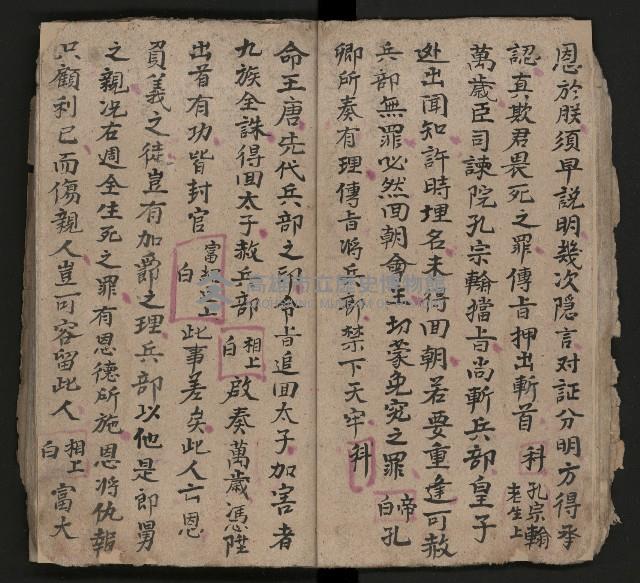 恩於朕須早説明幾次隠言对証分明方得季
認真欺君畏死之罪傳旨押出斬首 科 孔宗翰老生上
萬歲臣司諫院孔宗翰擋旨尚斬兵部皇子
处出聞知許時埋名未得回朝若要重逢可赦
兵部無罪必然回朝會主切蒙免寃之罪 帝白 孔
卿所奏有理傳旨将兵部禁下天牢 科
命王唐先代兵部之印令旨追回太子加害者
九族全誅得回太子赦兵部 相上白 啟奏萬歲憑陞
出首有功皆封官 富相上白 此事差矣此人亡恩
負義之徒豈有加爵之理兵部以他是郎舅
之親况右週全生死之罪有恩德所施恩将仇報
只顧利己而傷親人豈可容留此人 相上白 富大
高雄市立歷史博物館